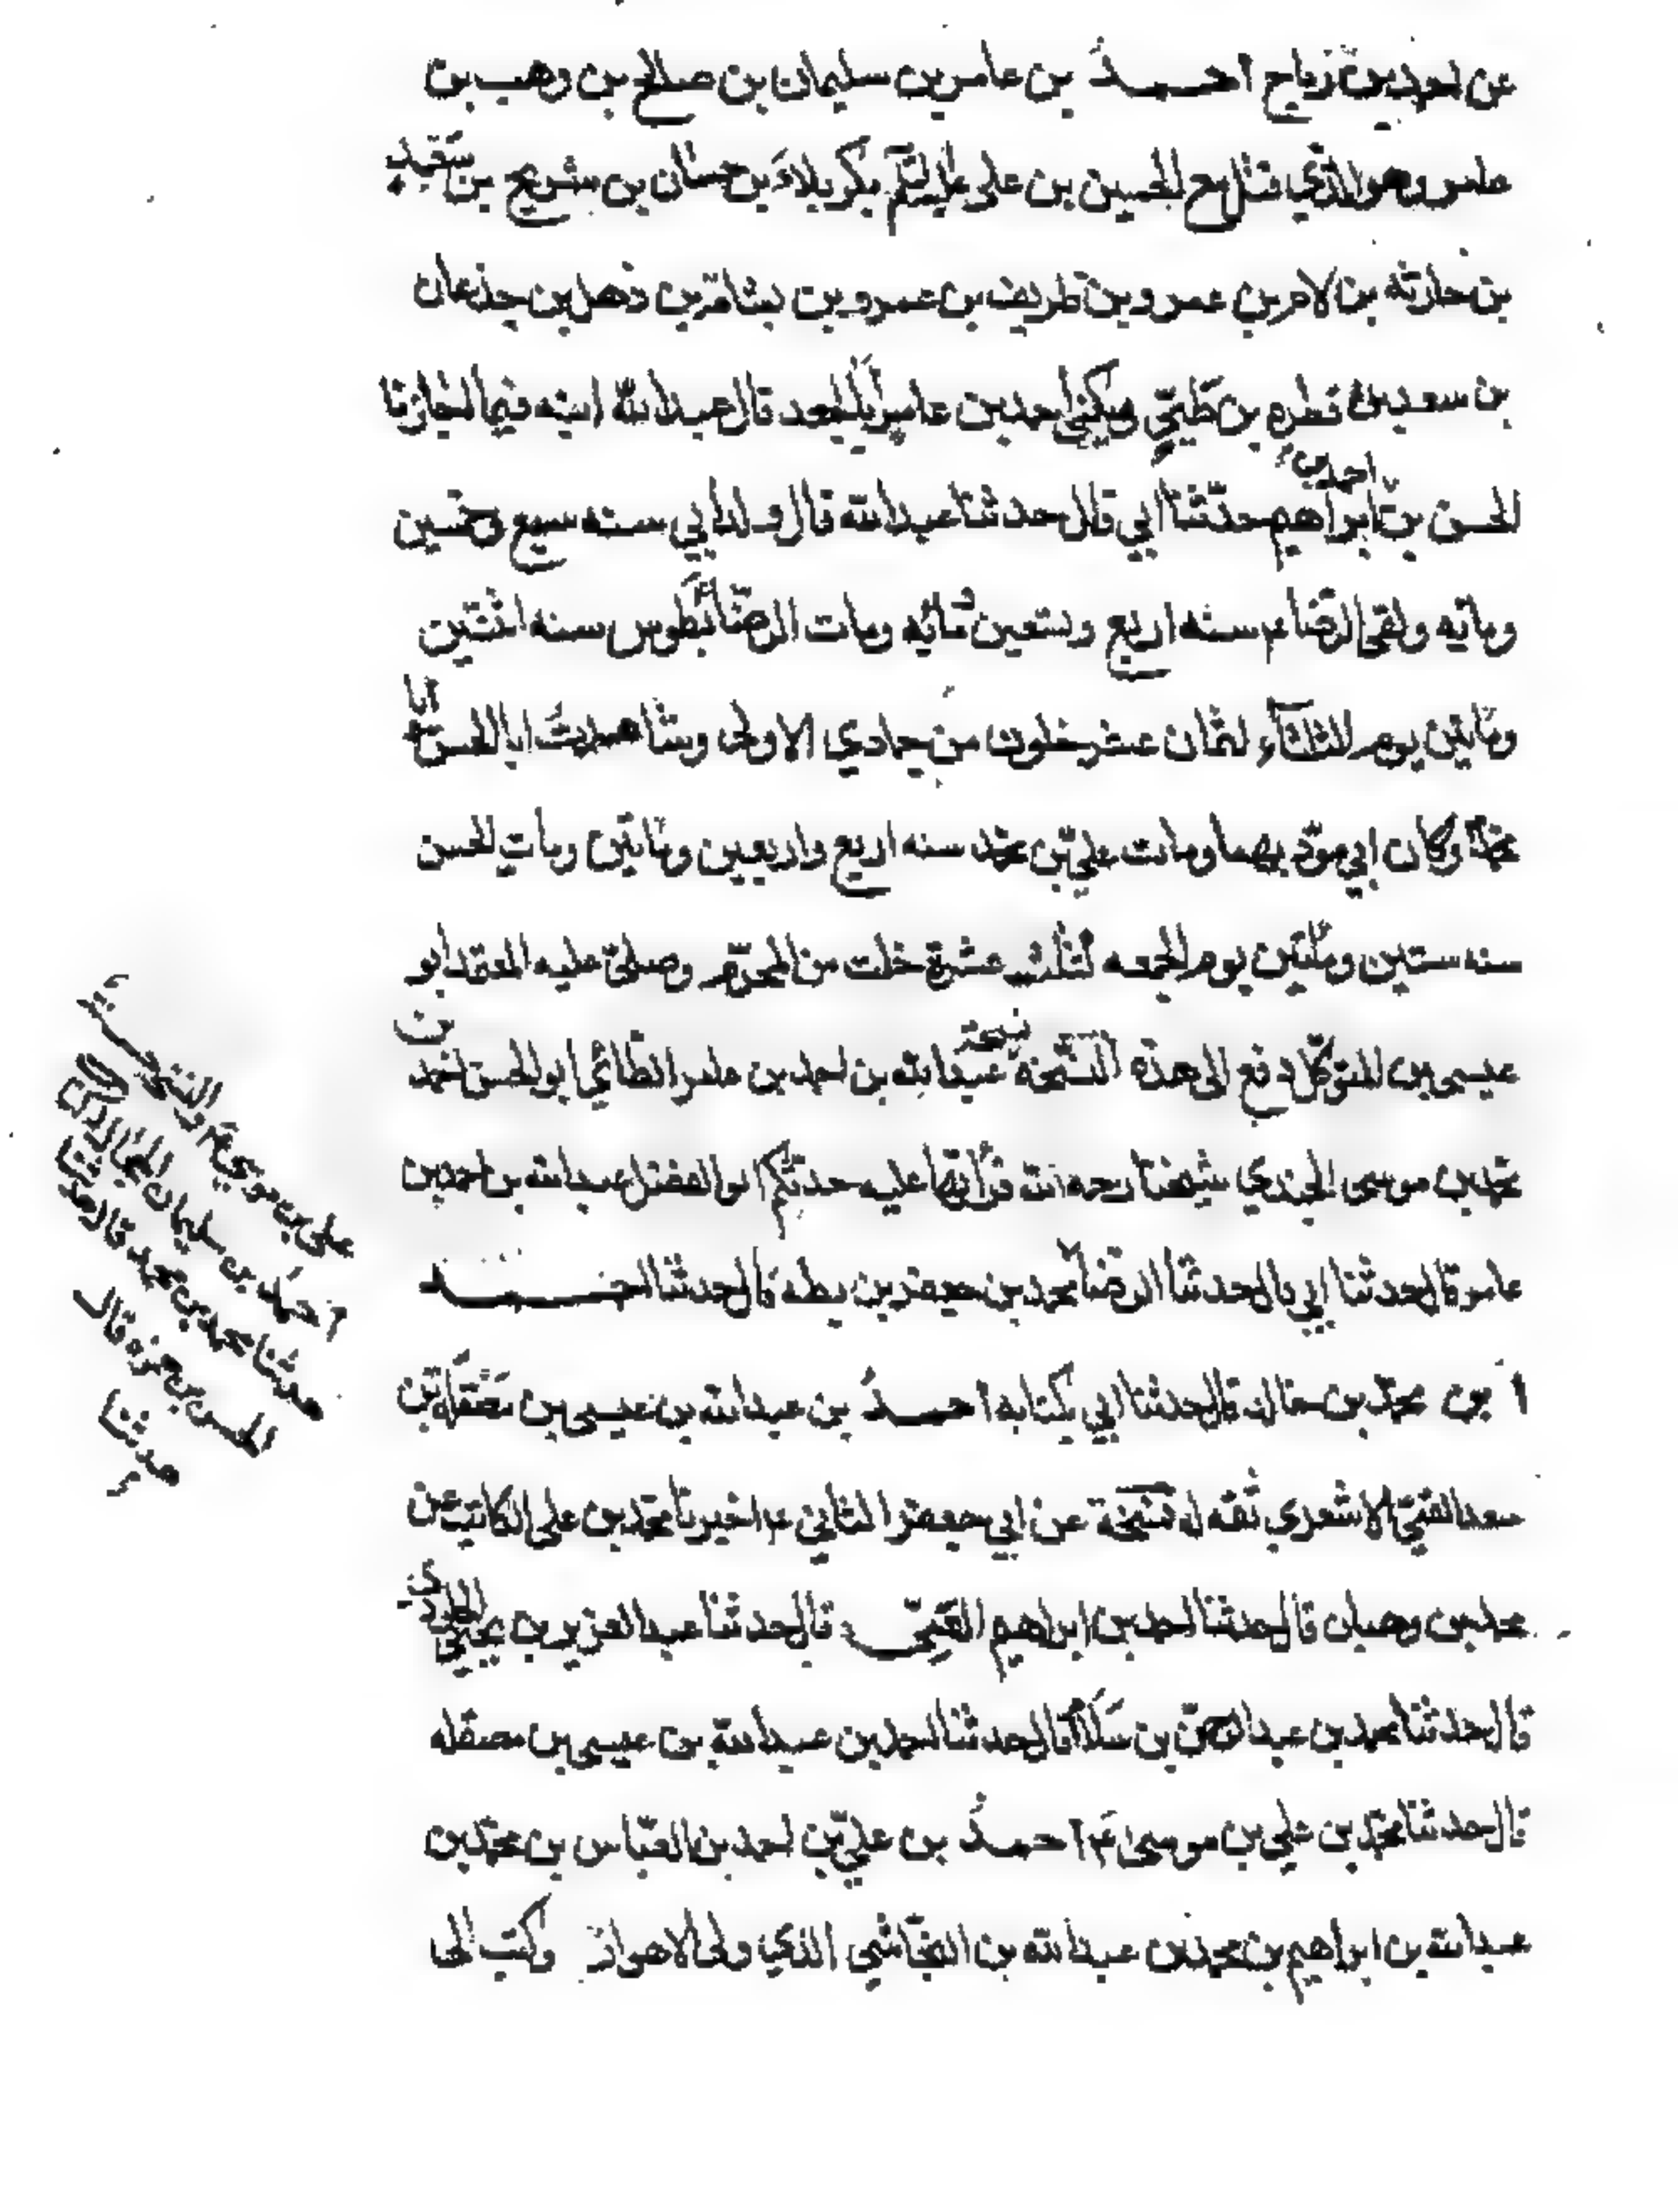 عن احمد بن رباح احمد بن عامر بن سليمان بن صالح بن وهب بن
عامر وهو الذي قتل مع الحسين بن علي عليهما السلم بكربلاء بن حسان بن شريح بن سعيد
بن حارثة بن لام بن عمرو بن طريف بن عمرو بن بثامة بن ذهل بن جذعان
بن سعد بن قطره بن طيّ ويكنى احمد بن عامر ابا الجعد قال عبدالله ابنه فيما اجازنا
الحسن بن احمد بن ابراهيم حدثنا ابي قال حدثنا عبدالله قال ولد ابي سنه سبع وخمسين
ومائه ولقى الرضا ع سنه اربع وتسعين مائه ومات الرضا بطوس سنه اثنتين
ومائتين يوم الثلثاء لثمان عشر خلون من جمادي الاولى وشاهدت ابا الحسن ابا
محمد وكان ابي مؤذنهما ومات علي بن محمد سنه اربع واربعين ومائتين ومات الحسن
سنه ستين ومائتين يوم الجمعه لثلث عشرة خلت من المحرّم وصلى عليه المعتمد ابو
عيسى بن المتوكل دفع الى هذه النسخة نسخة عبدالله بن احمد بن عامر الطائي ابو الحسن احمد بن
محمد بن موسى الجندي شيخنا رحمه الله قرأتها عليه حدثكم ابو الفضل عبدالله بن احمد بن
عامر قال حدثنا ابي قال حدثنا الرضا
علي بن موسى ع والنسخة حسنة
احمد بن سليمان الحجال
حدثنا محمد بن محمد قال حدثنا
الحسن بن حمزه قال
حدثنا
محمد بن جعفر بن بطه قال حدثنا احمد
بن محمد بن خالد قال حدثنا ابي بكتابه احمد بن عبدالله بن عيسى بن مصقلة بن
سعد القمّي الاشعري ثقه له نسخة عن ابي جعفر الثاني ع اخبرنا محمد بن علي الكاتب عن
محمد بن وهبان قال حدثنا احمد بن ابراهيم القمّي قال حدثنا عبدالعزيز بن يحيى الجلودي
قال حدثنا محمد بن عبدالرحمن بن سلام قال حدثنا احمد بن عبدالله بن عيسى بن مصقله
قال حدثنا محمد بن علي بن موسى ع احمد بن علي بن احمد بن العبّاس بن محمد بن
عبدالله بن ابراهيم بن محمد بن عبدالله بن النجّاشي الذي ولى الاهواز وكتب الى